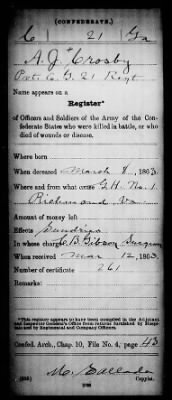 (CONFEDERATE.)
C 21 Ga
A. J. Crosby
Pvt. Co. G. 21 Regt
Name appears on a
Register*
of Officers and Soldiers of the Army of the Con-
federate States who were killed in battle, or who
died of wounds or disease.
Where born
When deceased March 8, 1863
Where and from what cause G.H. No. 1
Richmond Va.
Amount of money left
Effects Sundries
In whose charge C. B. Gibson Surgeon
When received Mar 12, 1863
Number of certificate 261
Remarks:
*This register appears to have been compiled in the Adjutant
and Inspector General's Office from returns furnished by Hospi-
tals and by Regimental and Company Officers.
Confed. Arch., Chap. 10, File No. 4, page 43
Copyist.